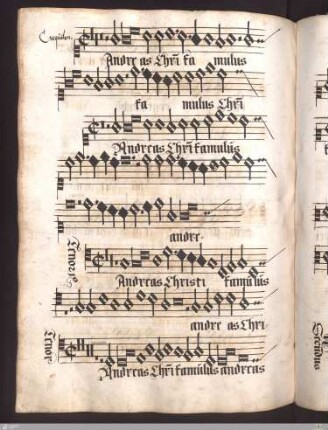 Andre as Chr̄i fa mulus
fa mulus Chr̄i
Andreas Chr̄i famulus
andre
Andreas Christi famulus
andre as Chri
Tenor
Andreas Chr̄i famulus andreas